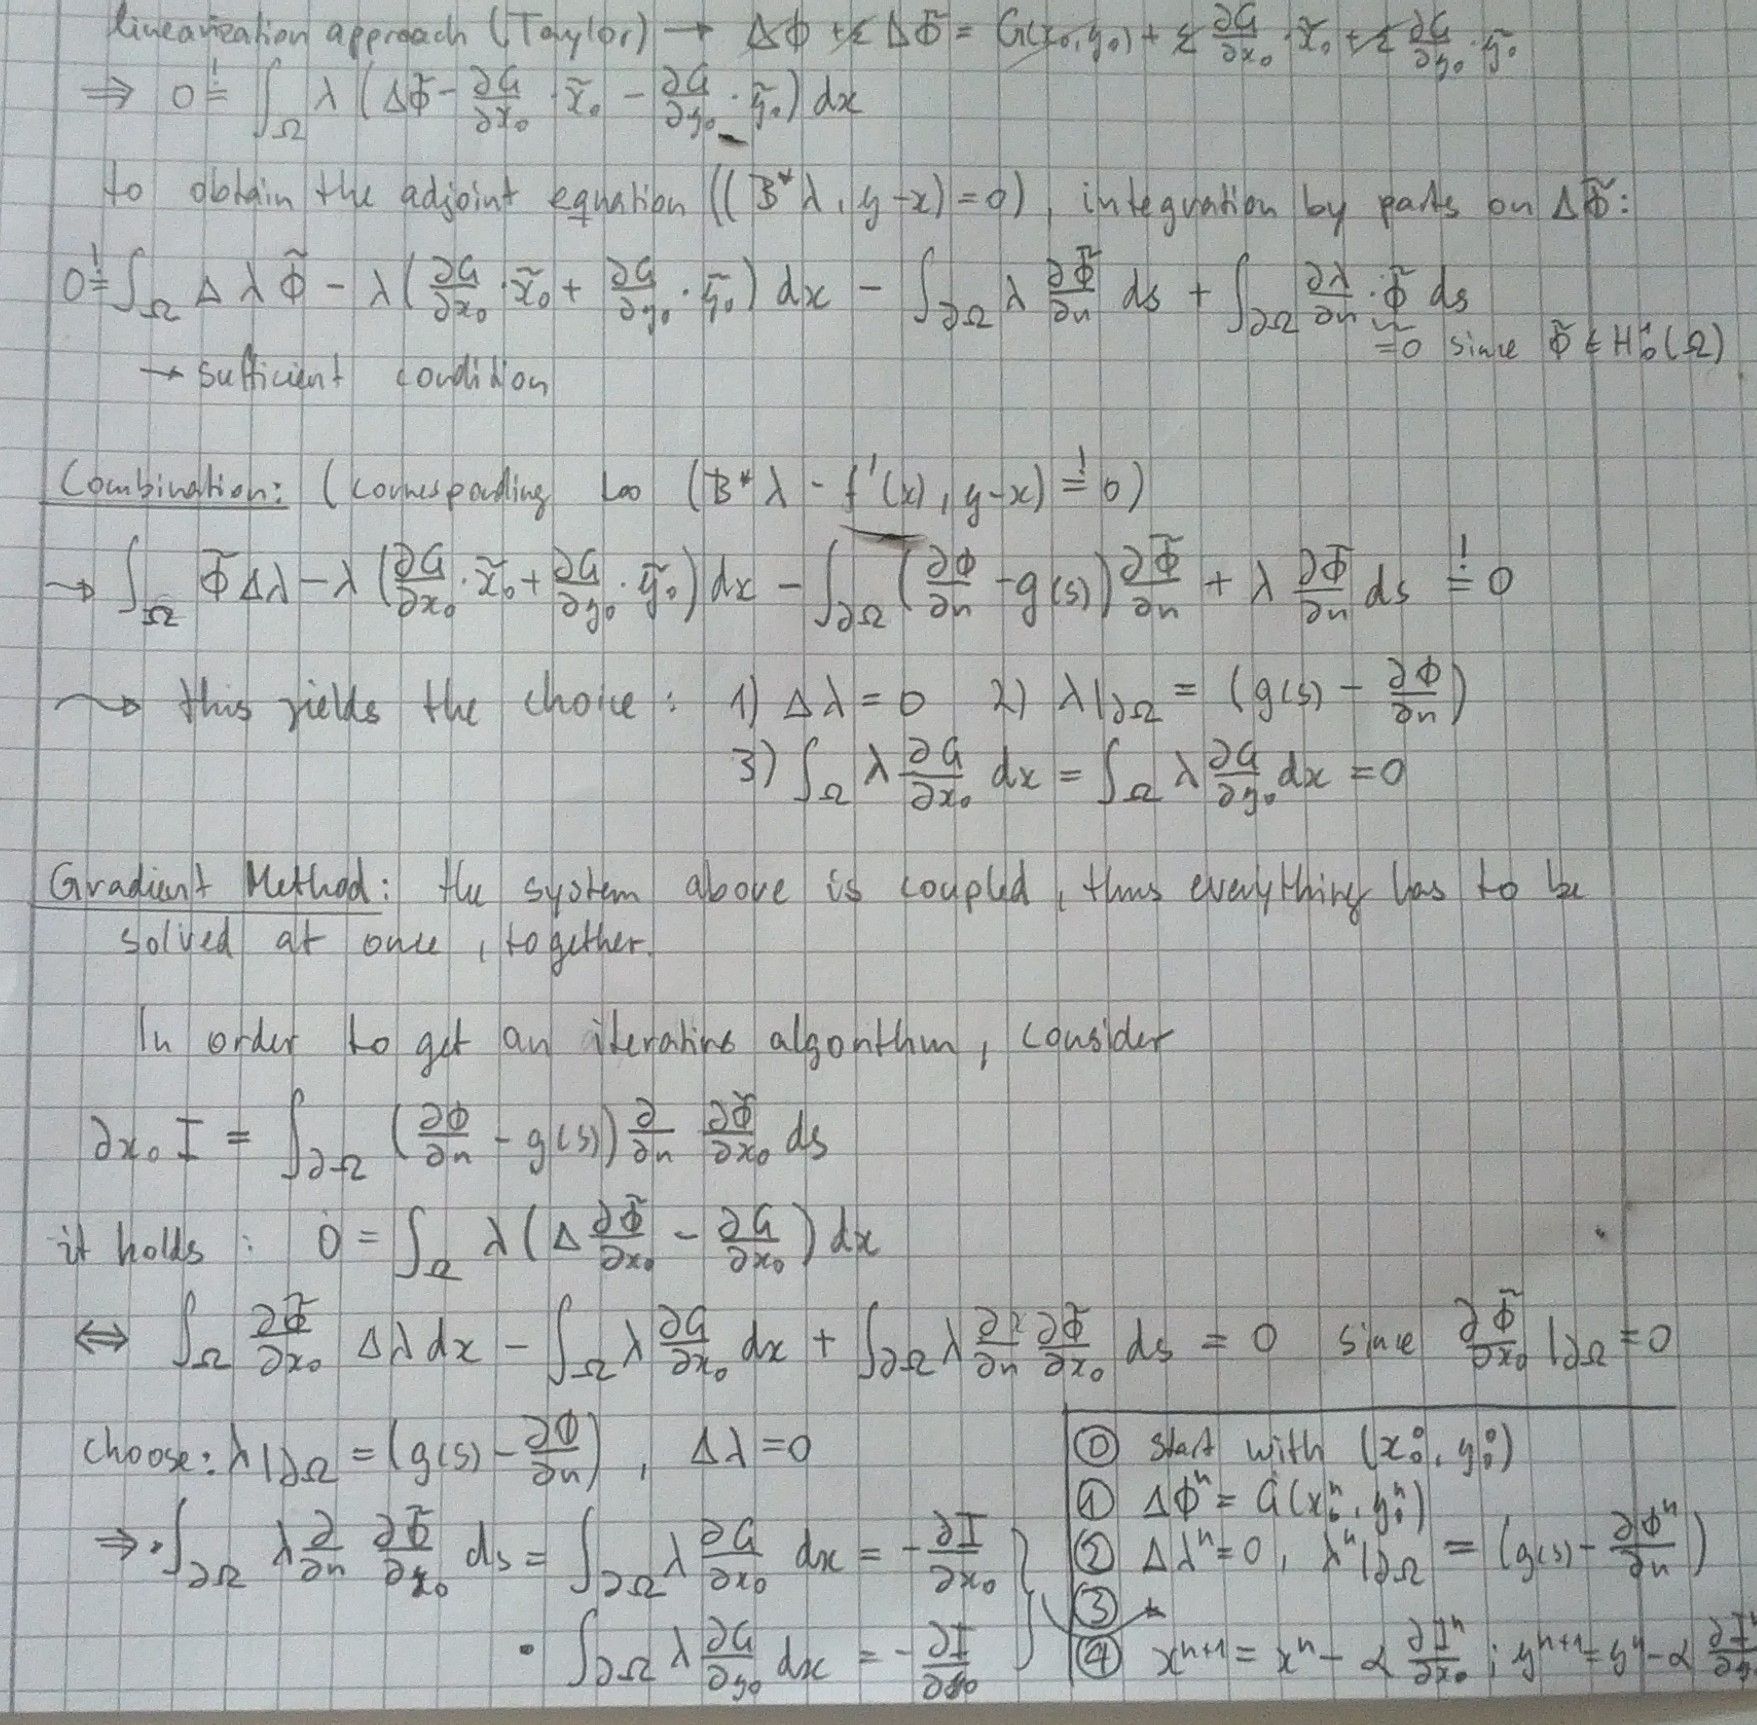 linearization approach (Taylor) → Δϕ + ε Δϕ̃ = G(x₀,y₀) + ε ∂G/∂x₀ · x̃₀ + ε ∂G/∂y₀ · ỹ₀
⇒ 0 =! ∫_Ω λ (Δϕ̃ - ∂G/∂x₀ · x̃₀ - ∂G/∂y₀ · ỹ₀) dx
to obtain the adjoint equation ((B*λ, y-x) = 0), integration by parts on Δϕ̃:
0 =! ∫_Ω Δλ ϕ̃ - λ(∂G/∂x₀ · x̃₀ + ∂G/∂y₀ · ỹ₀) dx - ∫_∂Ω λ ∂ϕ̃/∂n ds + ∫_∂Ω ∂λ/∂n · ϕ̃ ds
=0 since ϕ̃ ∈ H¹₀(Ω)
→ sufficient condition
Combination: (corresponding too (B*λ - f'(x), y-x) =! 0)
→ ∫_Ω ϕ̃ Δλ - λ (∂G/∂x₀ · x̃₀ + ∂G/∂y₀ · ỹ₀) dx - ∫_∂Ω (∂ϕ/∂n - g(s)) ∂ϕ̃/∂n + λ ∂ϕ̃/∂n ds =! 0
⇝ this yields the choice: 1) Δλ = 0 2) λ|∂Ω = (g(s) - ∂ϕ/∂n)
3) ∫_Ω λ ∂G/∂x₀ dx = ∫_Ω λ ∂G/∂y₀ dx = 0
Gradient Method: the system above is coupled, thus everything has to be
solved at once, together.
In order to get an iterative algorithm, consider
∂x₀ I = ∫_∂Ω (∂ϕ/∂n - g(s)) ∂/∂n ∂ϕ̃/∂x₀ ds
it holds: 0 = ∫_Ω λ (Δ ∂ϕ̃/∂x₀ - ∂G/∂x₀) dx
⇔ ∫_Ω ∂ϕ̃/∂x₀ Δλ dx - ∫_Ω λ ∂G/∂x₀ dx + ∫_∂Ω λ ∂/∂n ∂ϕ̃/∂x₀ ds = 0 since ∂ϕ̃/∂x₀ |∂Ω = 0
choose: λ|∂Ω = (g(s) - ∂ϕ/∂n), Δλ = 0
⇒ • ∫_∂Ω λ ∂/∂n ∂ϕ̃/∂x₀ ds = ∫_∂Ω λ ∂G/∂x₀ dx = - ∂I/∂x₀
• ∫_∂Ω λ ∂G/∂y₀ dx = - ∂I/∂y₀
⓪ start with (x₀⁰, y₀⁰)
① Δϕⁿ = G(x₀ⁿ, y₀ⁿ)
② Δλⁿ = 0, λⁿ|∂Ω = (g(s) - ∂ϕⁿ/∂n)
③
④ xⁿ⁺¹ = xⁿ - α ∂Iⁿ/∂x₀ ; yⁿ⁺¹ = yⁿ - α ∂Iⁿ/∂y₀